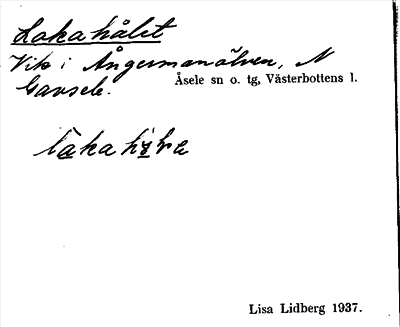 Lakahålet
Vik i Ångermanälven, N
Gavsele.
Åsele sn o. tg, Västerbottens l.
Lisa Lidberg 1937.